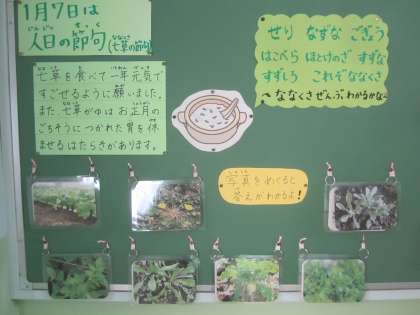 1月7日は
人日の節句(七草の節句)
七草を食べて一年元気で
すごせるように願いました。
また、七草がゆはお正月の
ごちそうにつかれた胃を休
ませるはたらきがあります。
せり なずな ごぎょう
はこべら ほとけのざ すずな
すずしろ これぞななくさ
～ななくさぜんぶわかるかな～
写真をめくると
答えがわかるよ!